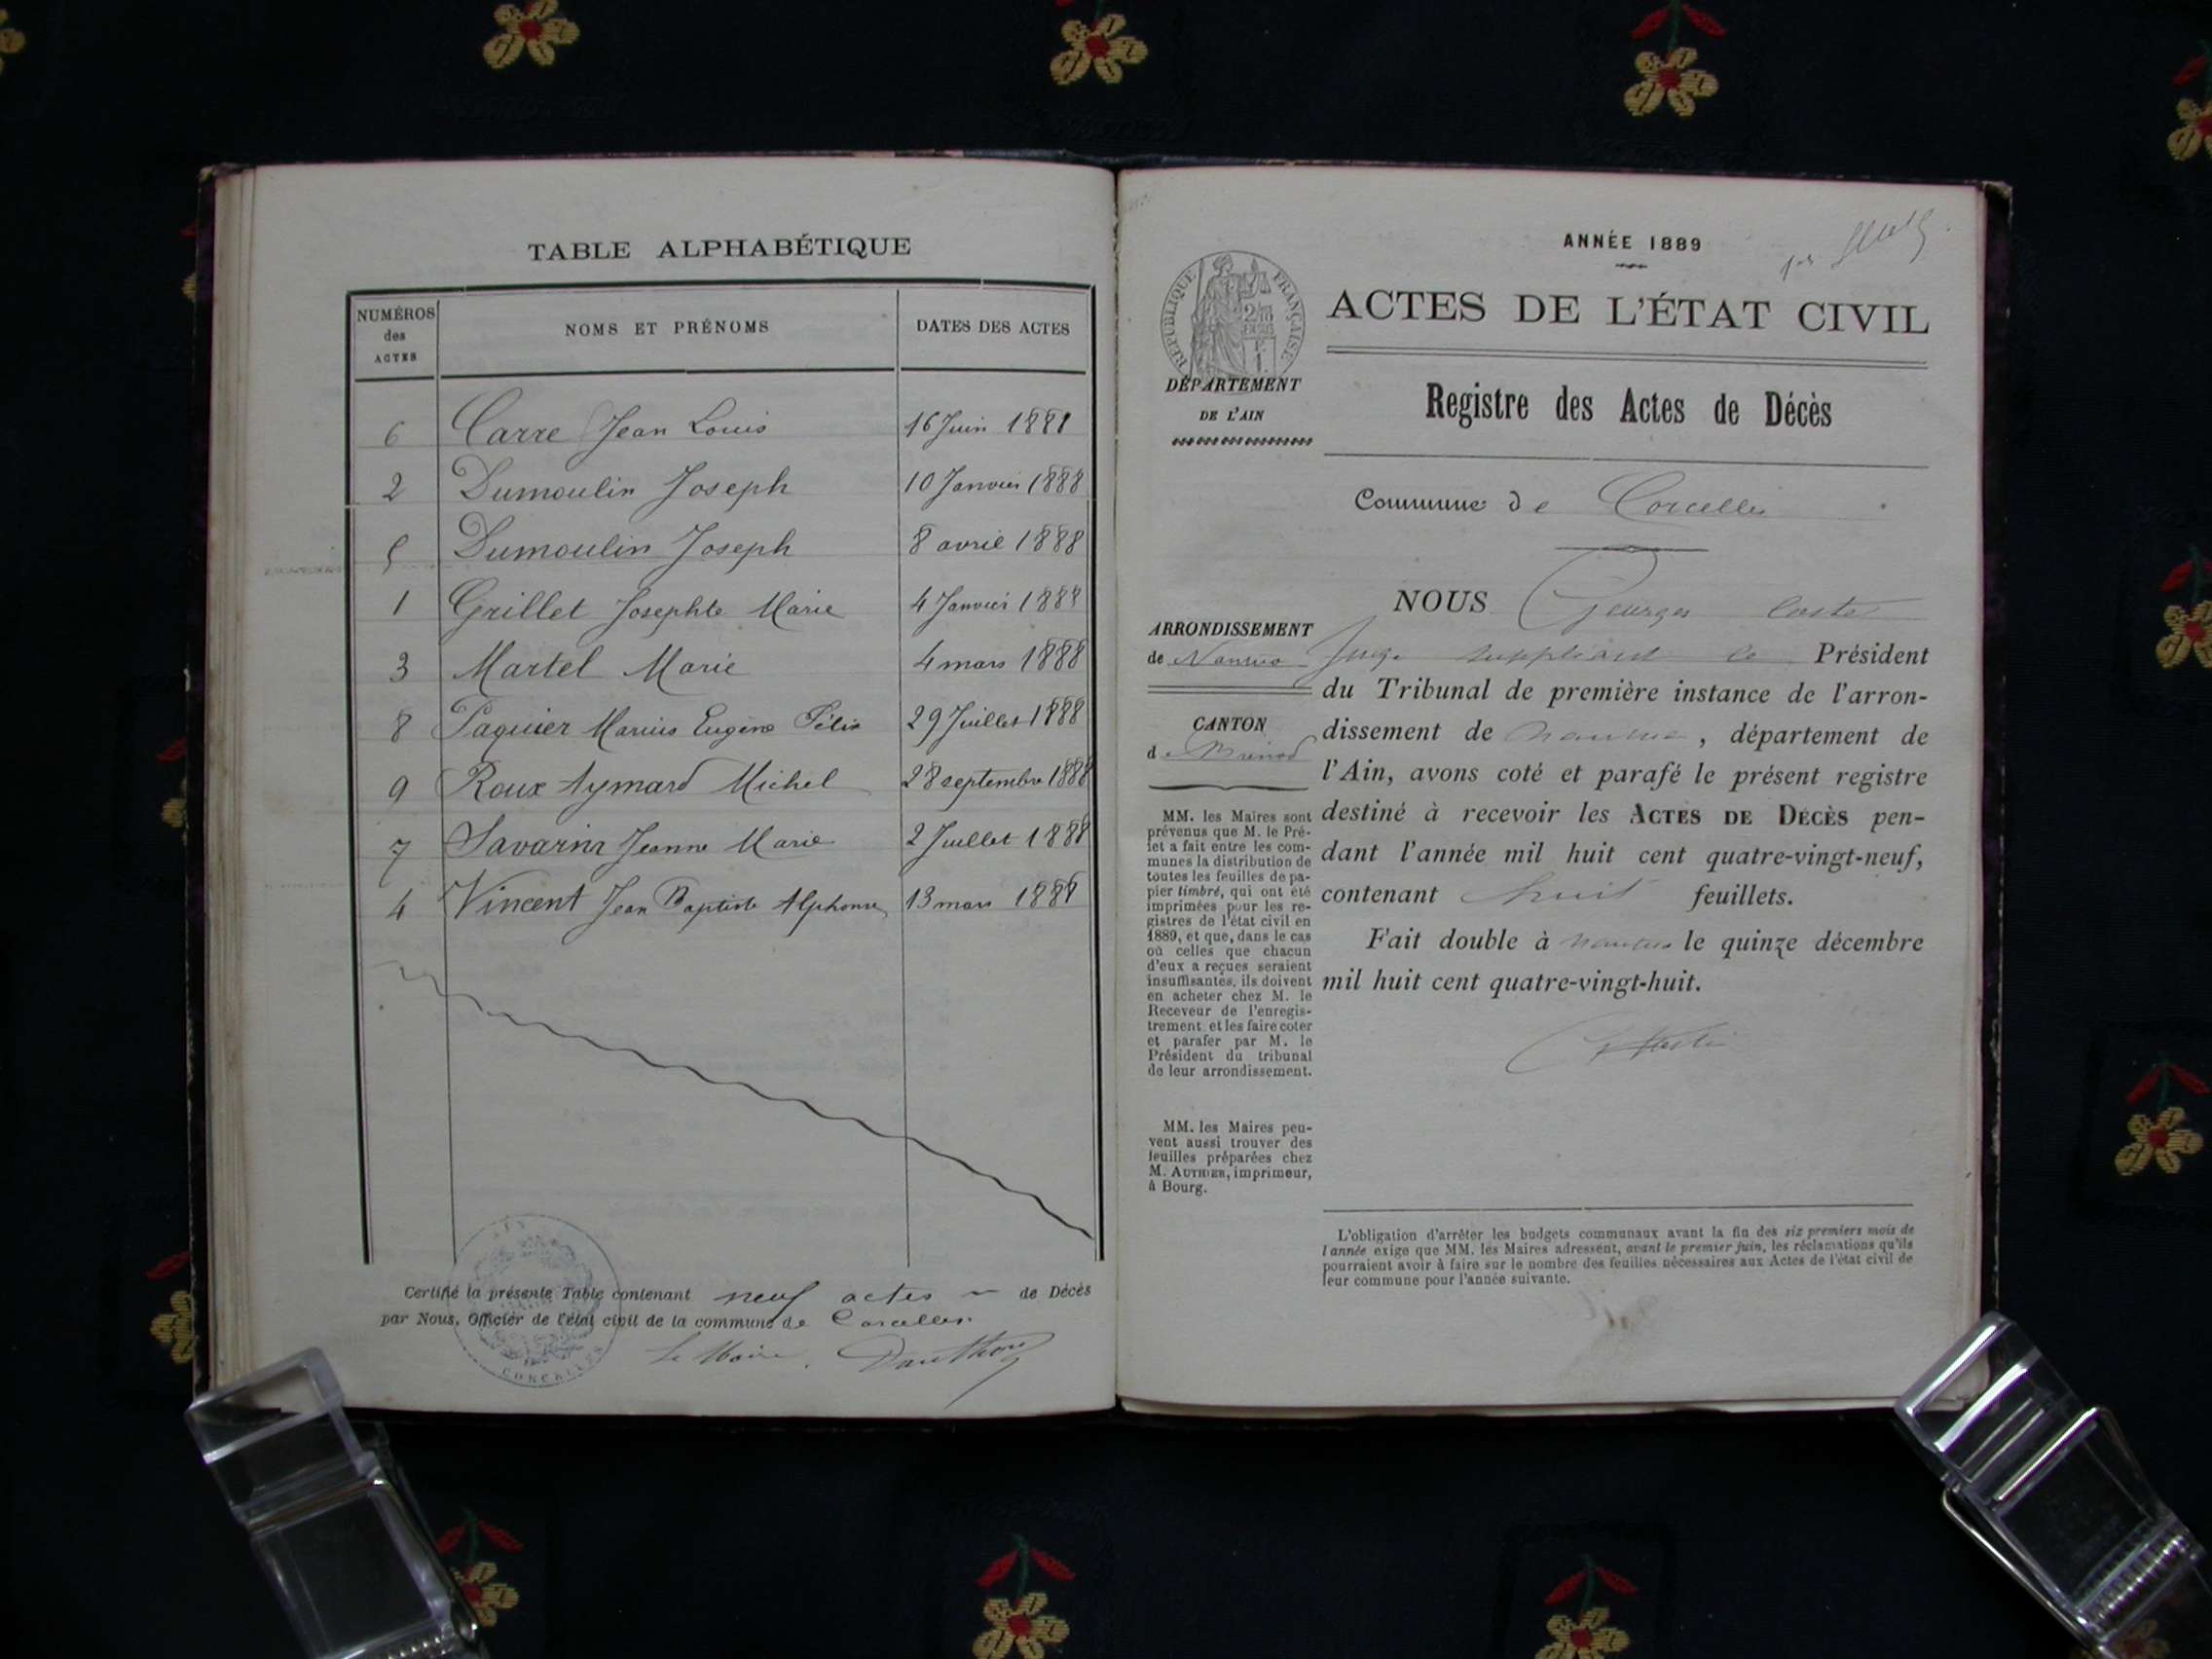 TABLE ALPHABÉTIQUE
NUMÉROS
des
ACTES
NOMS ET PRÉNOMS
DATES DES ACTES
6 Carre Jean Louis 16 Juin 1888
2 Dumoulin Joseph 10 Janvier 1888
5 Dumoulin Joseph 8 avril 1888
1 Grillet Josephte Marie 4 Janvier 1888
3 Martel Marie 4 mars 1888
8 Paquier Marius Eugène Félix 29 Juillet 1888
9 Roux Aymard Michel 28 septembre 1888
7 Savarin Jeanne Marie 2 Juillet 1888
4 Vincent Jean Baptiste Alphonse 13 mars 1888
Certifié la présente Table contenant neuf actes de Décès
par Nous, Officier de l'état civil de la commune de Corcelles
Le Maire,
CORCELLES
ANNÉE 1889
RÉPUBLIQUE FRANÇAISE
ACTES DE L'ÉTAT CIVIL
DÉPARTEMENT
DE L'AIN
Registre des Actes de Décès
Commune de Corcelles
NOUS Georges Coste
Juge suppléant le Président
du Tribunal de première instance de l'arron-
dissement de Nantua, département de
l'Ain, avons coté et parafé le présent registre
destiné à recevoir les ACTES DE DÉCÈS pen-
dant l'année mil huit cent quatre-vingt-neuf,
contenant huit feuillets.
Fait double à Nantua le quinze décembre
mil huit cent quatre-vingt-huit.
ARRONDISSEMENT
de Nantua
CANTON
de Brénod
MM. les Maires sont
prévenus que M. le Pré-
fet a fait entre les com-
munes la distribution de
toutes les feuilles de pa-
pier timbré, qui ont été
imprimées pour les re-
gistres de l'état civil en
1889, et que, dans le cas
où celles que chacun
d'eux a reçues seraient
insuffisantes, ils doivent
en acheter chez M. le
Receveur de l'enregis-
trement et les faire coter
et parafer par M. le
Président du tribunal
de leur arrondissement.
MM. les Maires peu-
vent aussi trouver des
feuilles préparées chez
M. AUTHIER, imprimeur,
à Bourg.
L'obligation d'arrêter les budgets communaux avant la fin des six premiers mois de
l'année exige que MM. les Maires adressent, avant le premier juin, les réclamations qu'ils
pourraient avoir à faire sur le nombre des feuilles nécessaires aux Actes de l'état civil de
leur commune pour l'année suivante.